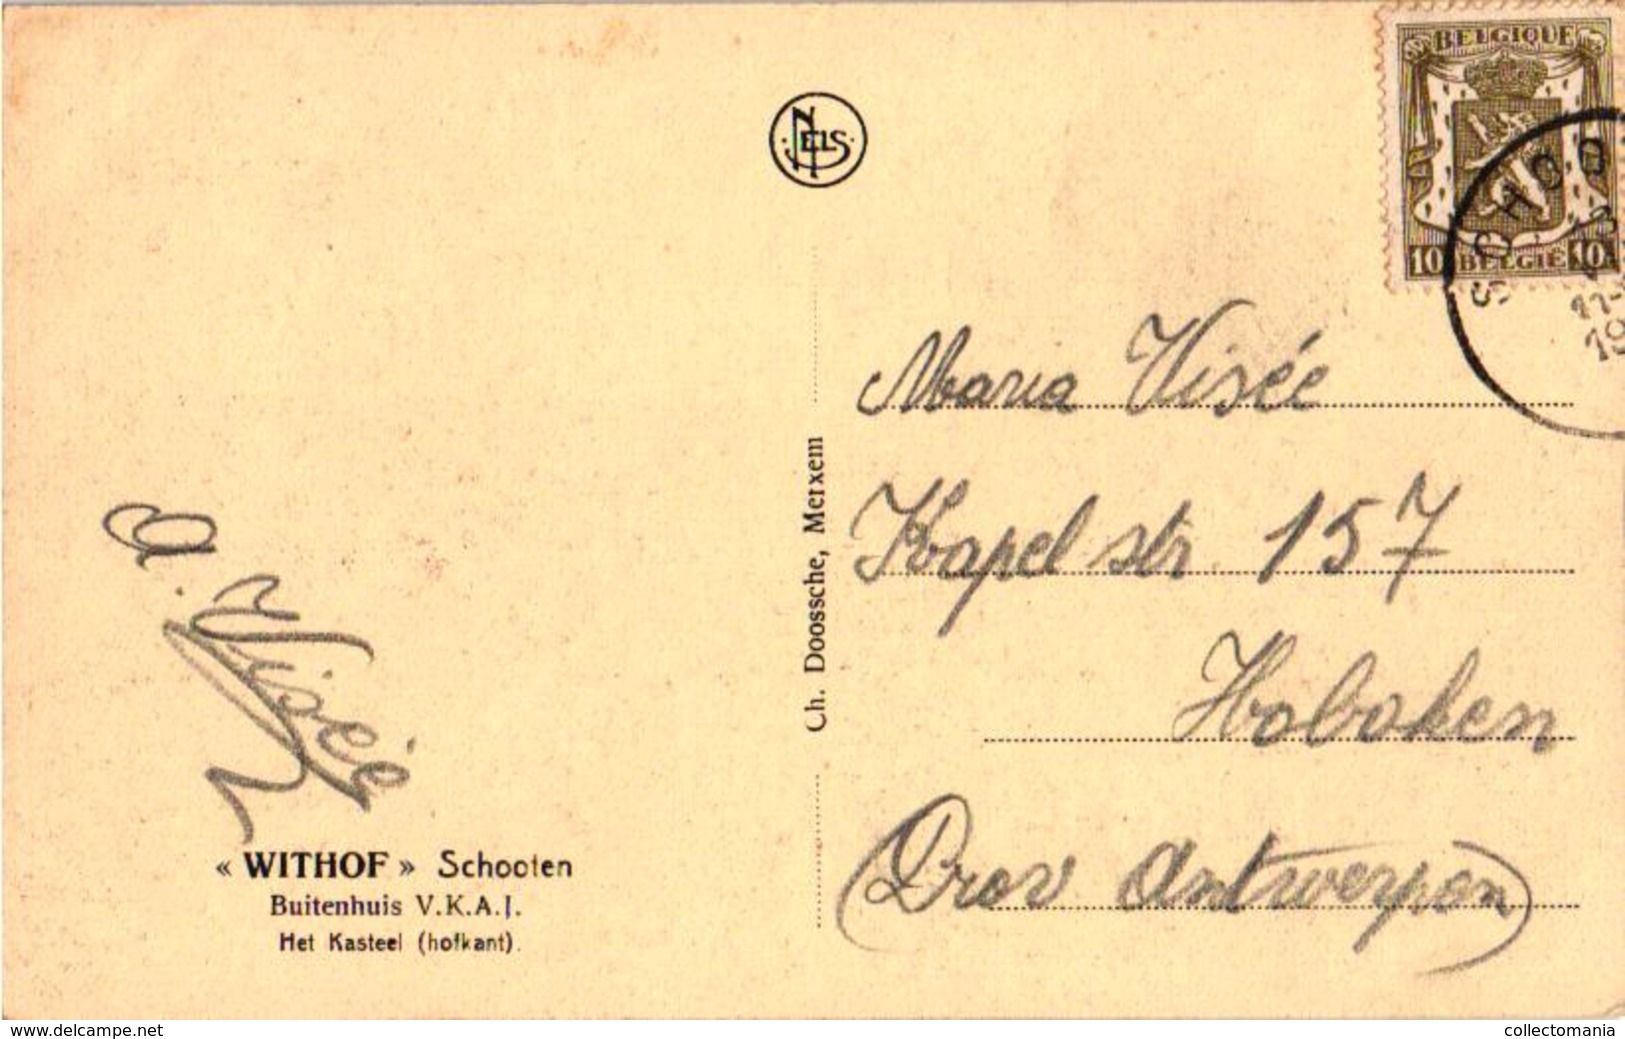 BELGIQUE
10 BELGIË 10
SCHOO
11-
19
NELS
Maria Visée
Kapelstr 157
Hoboken
(Prov Antwerpen)
Ch. Doossche, Merxem
a. Visée
« WITHOF » Schooten
Buitenhuis V.K.A.J.
Het Kasteel (hofkant).
www.delcampe.net
collectomania